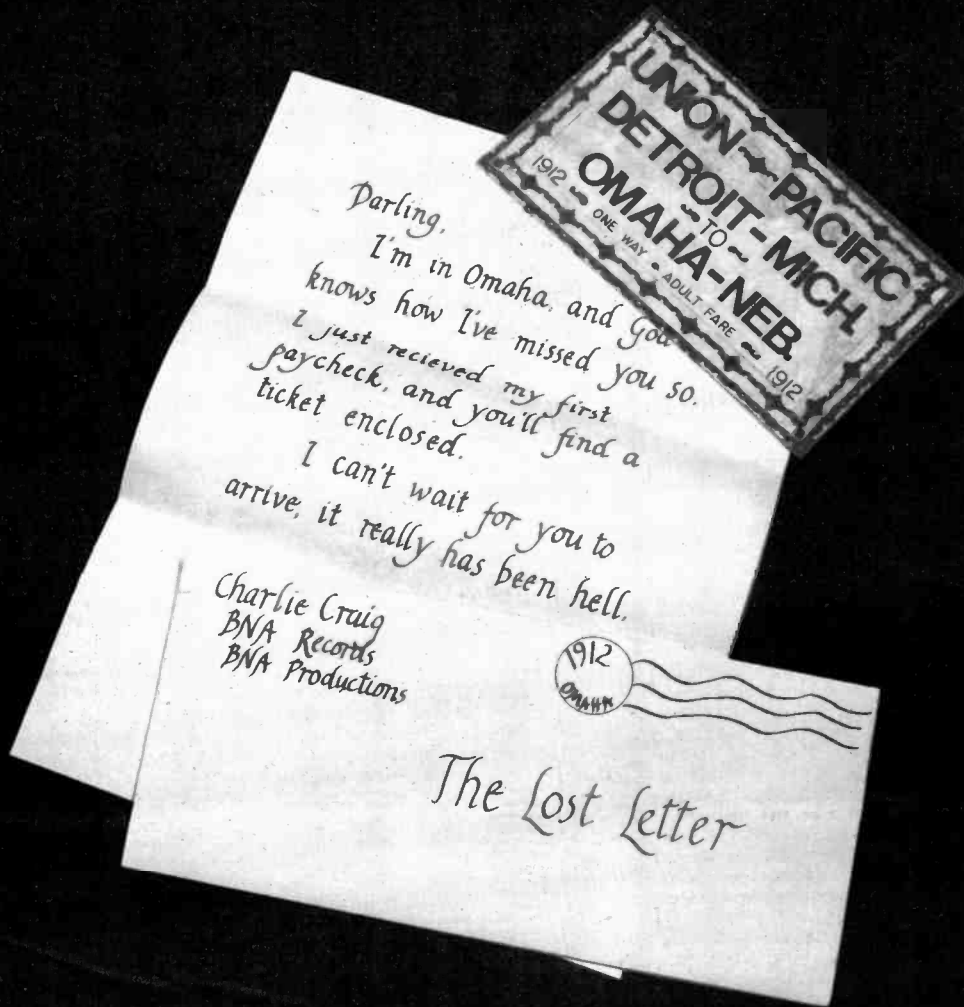 UNION PACIFIC
DETROIT-MICH.
~TO~
OMAHA-NEB.
1912 ~ ONE WAY • ADULT FARE ~ 1912
Darling,
I'm in Omaha, and God
knows how I've missed you so.
I just recieved my first
paycheck, and you'll find a
ticket enclosed.
I can't wait for you to
arrive, it really has been hell.
Charlie Craig
BNA Records
BNA Productions
1912
OMAHA
The Lost Letter